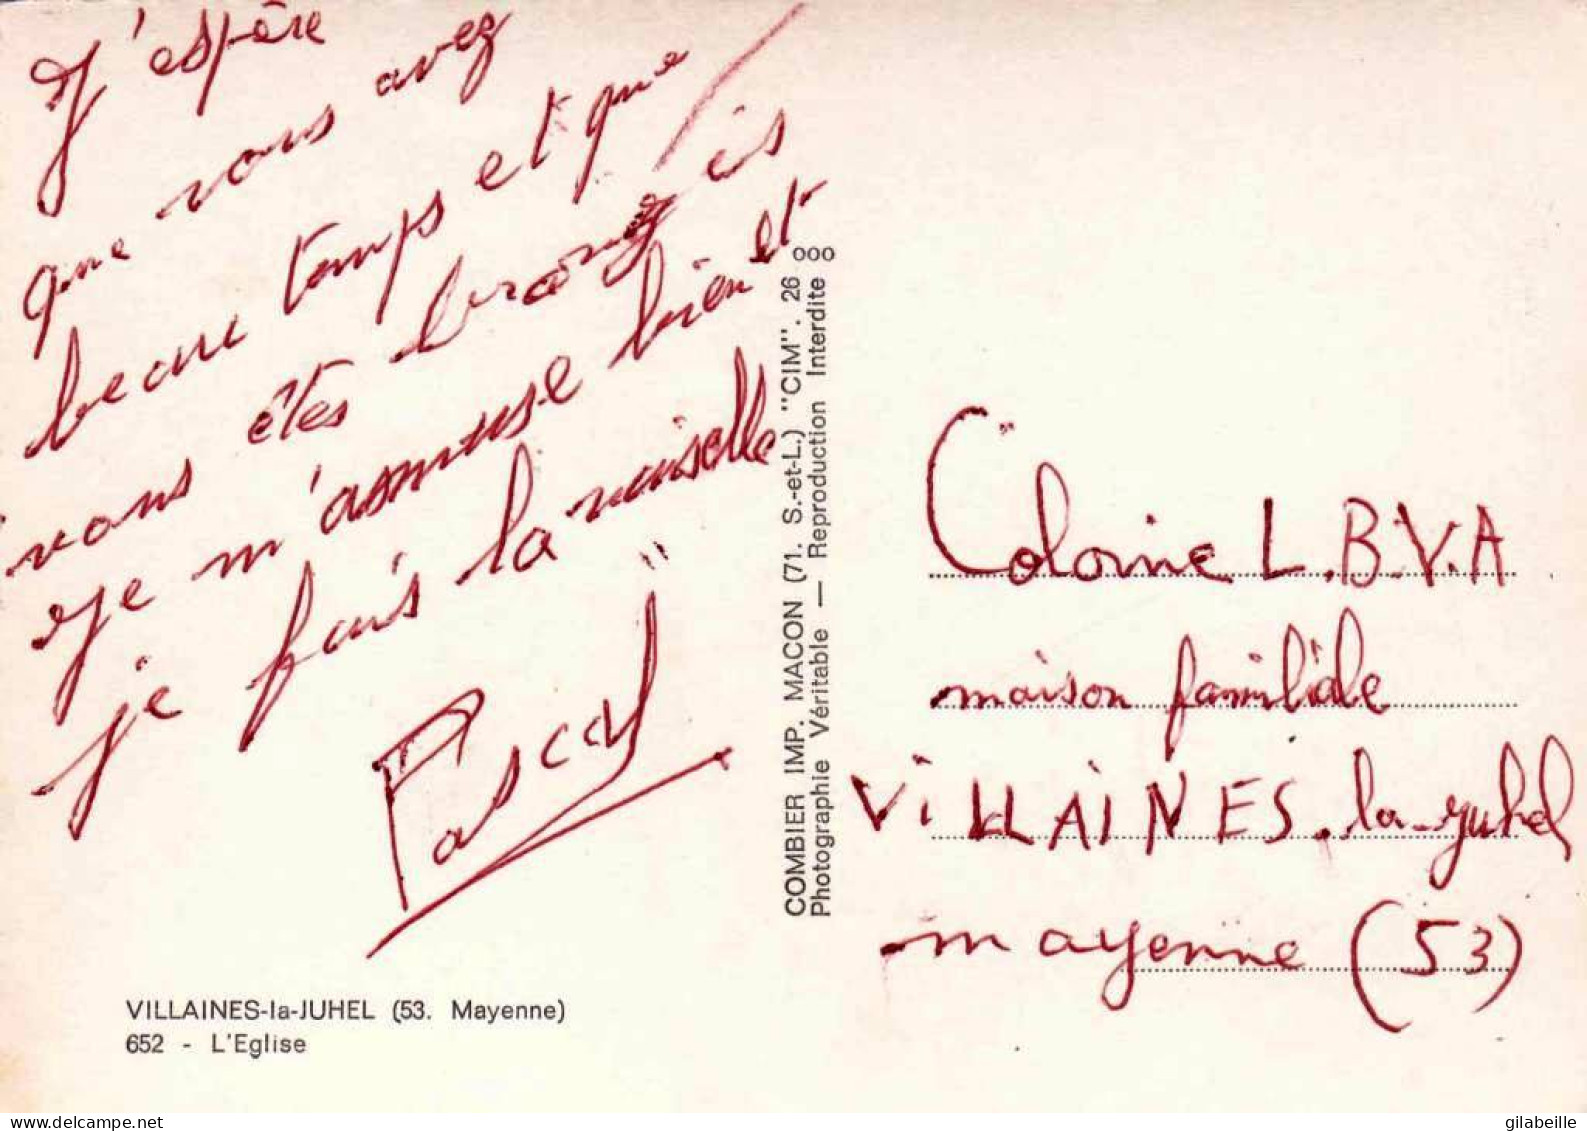 J'espère
que vous avez
beau temps et que
vous êtes bronzés
je m'amuse bien et
je fais la vaiselle
Pascal
VILLAINES-la-JUHEL (53. Mayenne)
652 - L'Eglise
COMBIER IMP. MACON (71. S.-et-L.) "CIM". 26 000
Photographie Véritable — Reproduction Interdite
Colonie L.B.V.A
maison familiale
ViLLAINES.la-Juhel
mayenne (53)
gilabeille